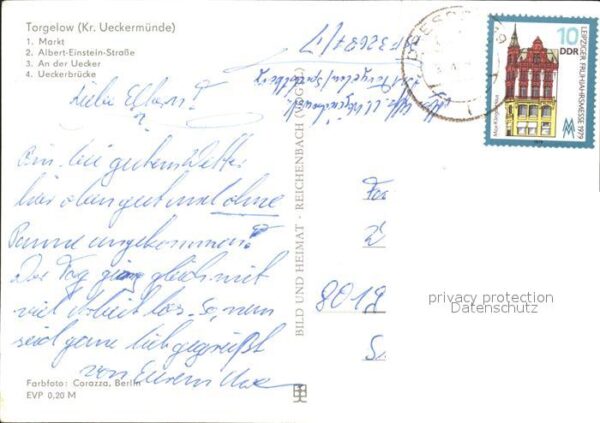 Torgelow (Kr. Ueckermünde)
1. Markt
2. Albert-Einstein-Straße
3. An der Uecker
4. Ueckerbrücke
Liebe Eltern!
Bin bei gutem Wetter
hier oben gut und ohne
Panne angekommen.
Der Tag ging gleich mit
viel Arbeit los. So, nun
seid ganz lieb gegrüßt
von Eurem Uwe
Farbfoto: Corazza, Berlin
EVP 0,20 M
BILD UND HEIMAT · REICHENBACH (VOGTL)
10
DDR
LEIPZIGER FRÜHJAHRSMESSE 1979
Max-Klinger-Haus
Fa
8019
privacy protection
Datenschutz